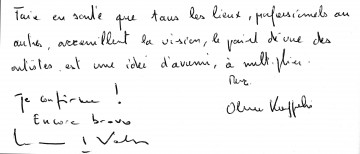 Faire en sorte que tous les lieux, professionnels ou
autres, accueillent la vision, le point de vue des
artistes est une idée d'avenir, à multiplier.
Je confirme !
Encore bravo